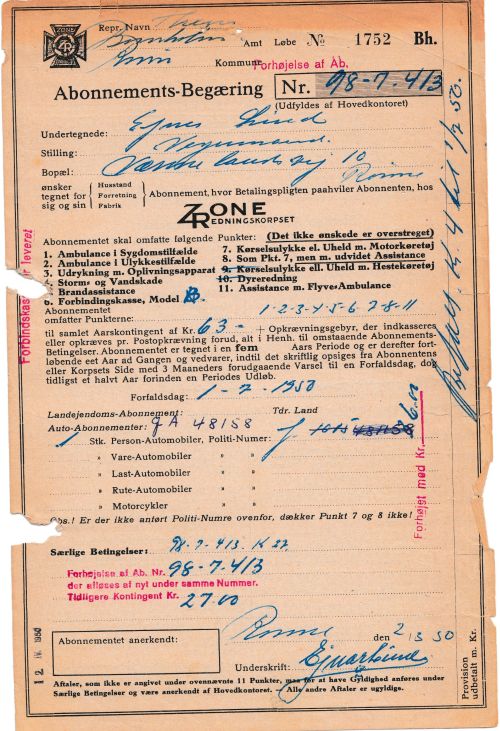 ZONE
Repr. Navn
Bornholms Amt Løbe № 1752 Bh.
Kommune
Forhøjelse af Ab.
Abonnements-Begæring Nr. 98-7-413
(Udfyldes af Hovedkontoret)
Undertegnede: Ejnar Lund
Stilling: Vognmand
Bopæl: Værmelandsvej 10
Rønne
ønsker tegnet for sig og sin
Husstand
Forretning
Fabrik
Abonnement, hvor Betalingspligten paahviler Abonnenten, hos
ZONE
REDNINGSKORPSET
Abonnementet skal omfatte følgende Punkter: (Det ikke ønskede er overstreget)
1. Ambulance i Sygdomstilfælde
2. Ambulance i Ulykkestilfælde
3. Udrykning m. Oplivningsapparat
4. Storms- og Vandskade
5. Brandassistance
6. Forbindingskasse, Model B
7. Kørselsulykke el. Uheld m. Motorkøretøj
8. Som Pkt. 7, men m. udvidet Assistance
9. Kørselsulykke ell. Uheld m. Hestekøretøj
10. Dyreredning
11. Assistance m. Flyve-Ambulance
Abonnementet
omfatter Punkterne: 1-2-3-4-5-6-7-8-11
til samlet Aarskontingent af Kr. 63- + Opkrævningsgebyr, der indkasseres
eller opkræves pr. Postopkrævning forud, alt i Henh. til omstaaende Abonnements-
Betingelser. Abonnementet er tegnet i en fem Aars Periode og er derefter fort-
løbende eet Aar ad Gangen og vedvarer, indtil det skriftlig opsiges fra Abonnentens
eller Korpsets Side med 3 Maaneders forudgaaende Varsel til en Forfaldsdag, dog
tidligst et halvt Aar forinden en Periodes Udløb.
Forfaldsdag: 1-7-1950
Landejendoms-Abonnement: Tdr. Land
Auto-Abonnenter: 48158
1 Stk. Person-Automobiler, Politi-Numer:
» Vare-Automobiler » »
» Last-Automobiler » »
» Rute-Automobiler » »
» Motorcykler » »
Obs.! Er der ikke anført Politi-Numre ovenfor, dækker Punkt 7 og 8 ikke!
Særlige Betingelser: 98-7-413
Forhøjelse af Ab. Nr. 98-7-413
der afløses af nyt under samme Nummer.
Tidligere Kontingent Kr. 27.00
Rønne den
Abonnementet anerkendt:
Underskrift:
Aftaler, som ikke er angivet under ovennævnte 11 Punkter, maa for at have Gyldighed anføres under
Særlige Betingelser og være anerkendt af Hovedkontoret. — Alle andre Aftaler er ugyldige.
12. IV. 1950
leveret
Forhøjet med Kr. 36.00
Provision
udbetalt m. Kr.